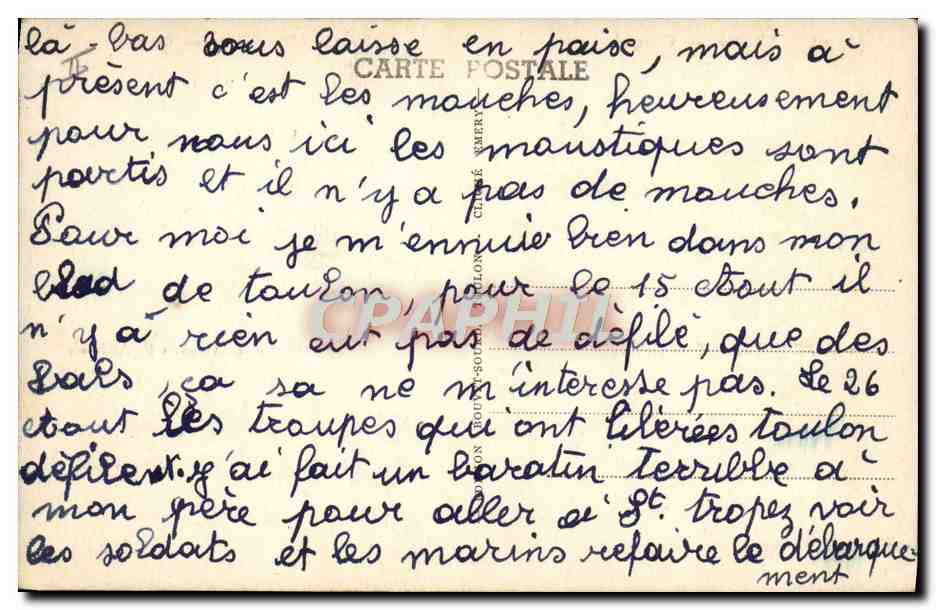 là-bas vous laisse en paise, mais à
II
CARTE POSTALE
présent c'est les mouches, heureusement
pour nous ici les moustiques sont
partis et il n'y a pas de mouches.
Pour moi je m'ennuie bien dans mon
de toulon, pour le 15 Aout il
n'y à rien eut pas de défilé, que des
Bals, ça sa ne m'interesse pas. Le 26
Aout les troupes qui ont liberées toulon
défilent. j'ai fait un baratin terrible à
mon père pour aller à St. tropez voir
les soldats et les marins refaire le débarque-
ment
CLICHÉ EMERY
CPAPHIL